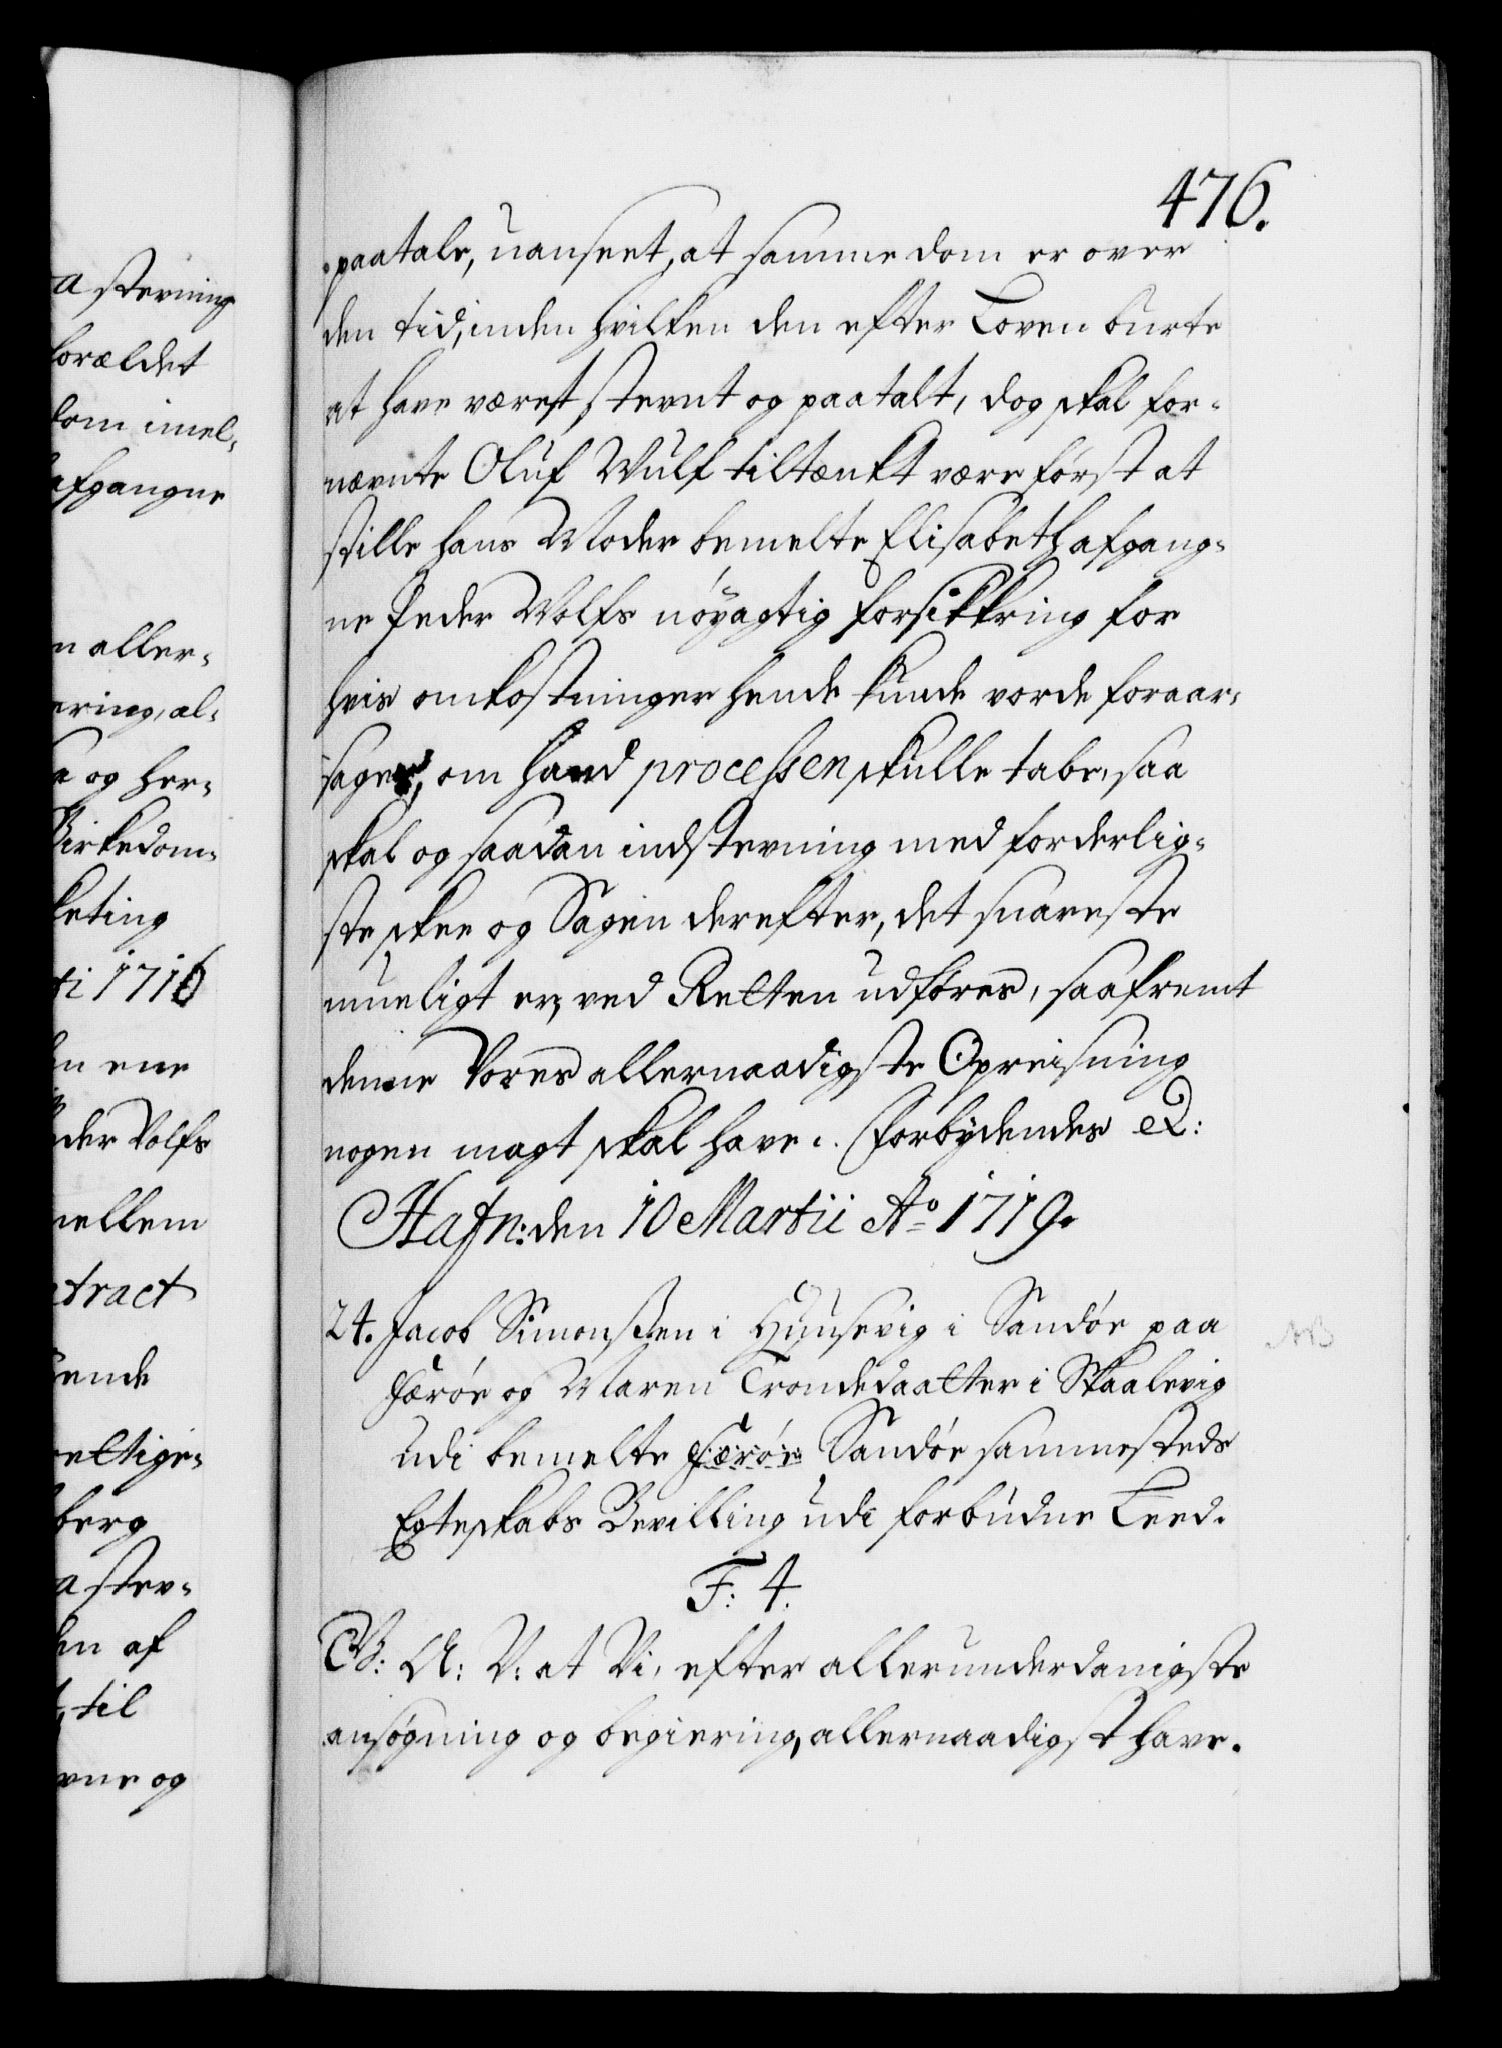 476.
paatale, uanseet, at samme dom er over
den tid, inden hvilken den efter Loven burte
at have været stevnt og paatalt, dog skal for-
nævnte Oluf Wulf tiltænkt være først at
stille hans Moder bemelte Elisabeth afgang-
ne Peder Wolfs nøyagtig forsikkring for
hvis omkostninger hende kunde vorde foraar-
saget, om hand processen skulle tabe, saa
skal og saadan indstevning med forderlig-
ste skee og Sagen derefter, det snareste
mueligt er, ved Retten udføres, saafremt
denne Vores allernaadigste Opreisning
nogen magt skal have. Forbydendes &:
Hafn: den 10 Martii Ao 1719.
24. Jacob Simonsen i Huusevig i Sandøe paa
Færøe og Maren Trondedaatter i Skaalevig
udi bemelte Færøe Sandøe sammesteds
Egteskabs Bevilling udi forbudne Leed.
F: 4.
G: A: V: at Vi, efter allerunderdanigste
ansøgning og begiering, allernaadigst have.
NB
a stevning
forældet
dom imel-
afgangne
n aller-
ering, al-
a og her-
Birkedom-
keting
ti 1716
en ene
eder Volfs
mellem
tract
ende
rettige-
berg
a stev-
den af
t, til
vne og